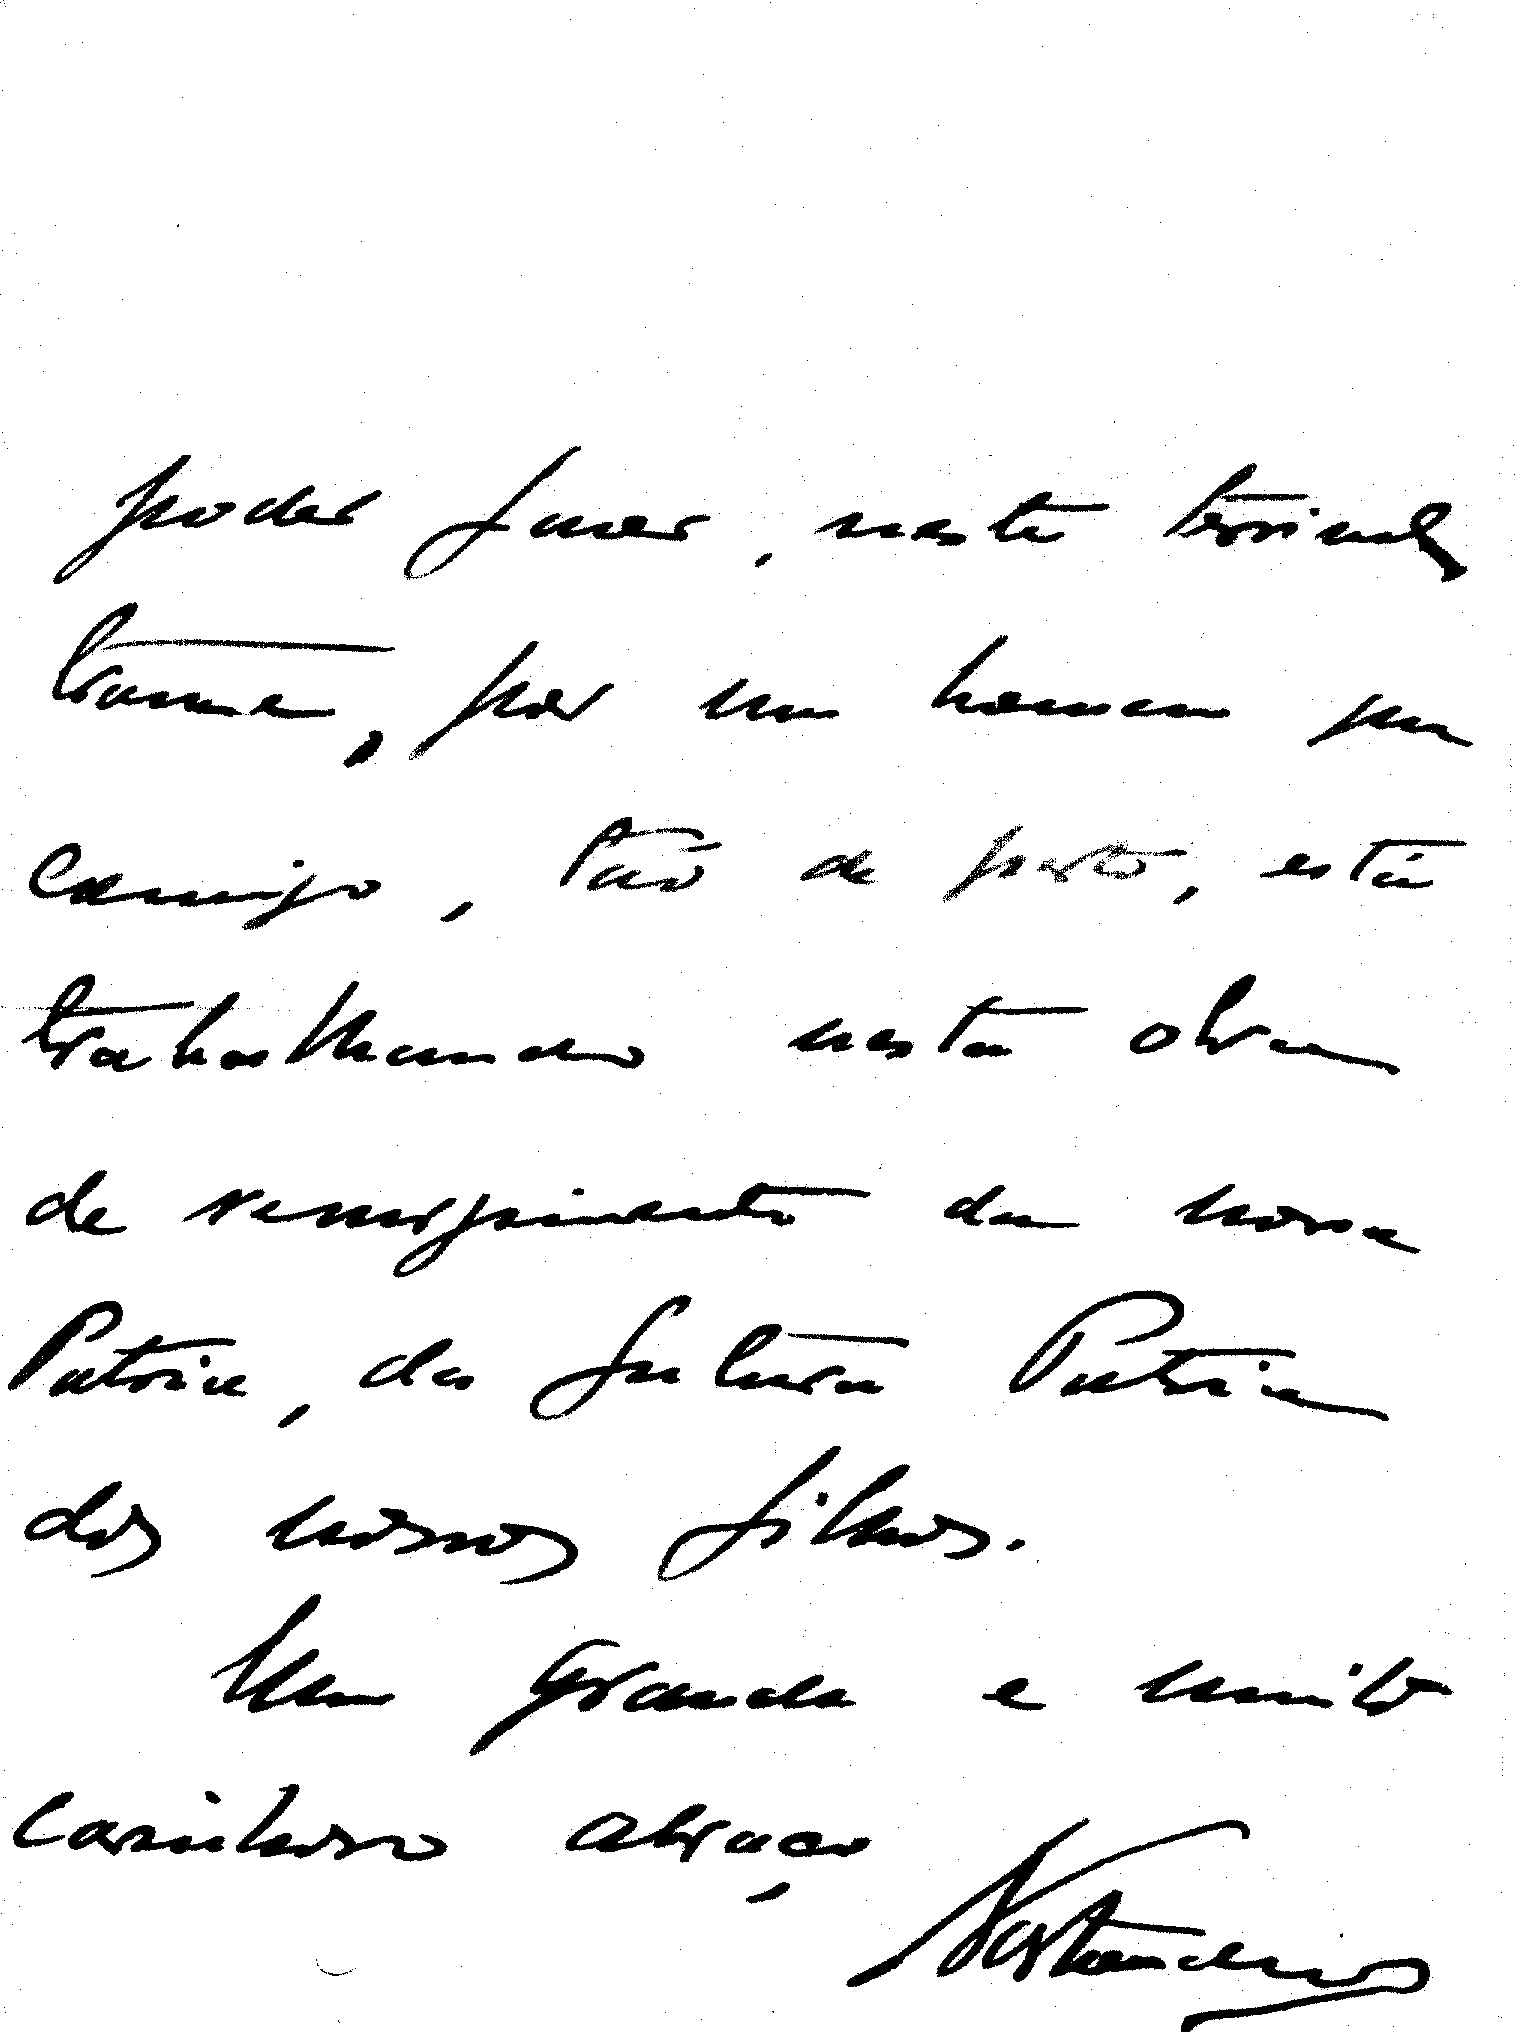 poder fazer, neste terrivel
trama, por um homem que
comigo, tão de perto, está
trabalhando nesta obra
de resurgimento da nossa
Patria, da futura Patria
dos nossos filhos.
Um grande e muito
carinhoso abraço